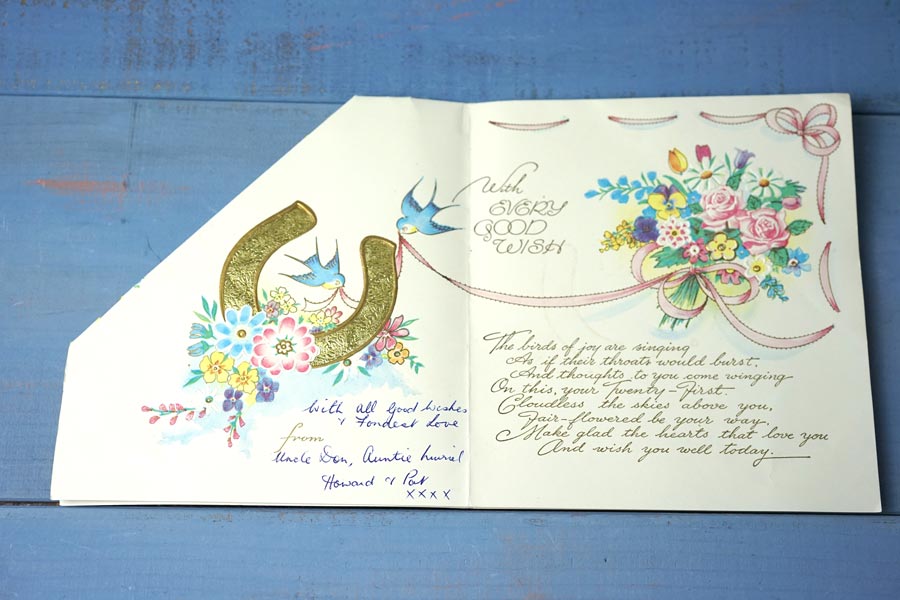 With all Good Wishes
& Fondest Love
from
Uncle Don, Auntie Muriel
Howard & Pat
xxxx
With
EVERY
GOOD
WISH
The birds of joy are singing
As if their throats would burst,
And thoughts to you come winging
On this, your Twenty-First.
Cloudless the skies above you,
Fair-flowered be your way,
Make glad the hearts that love you
And wish you well today.